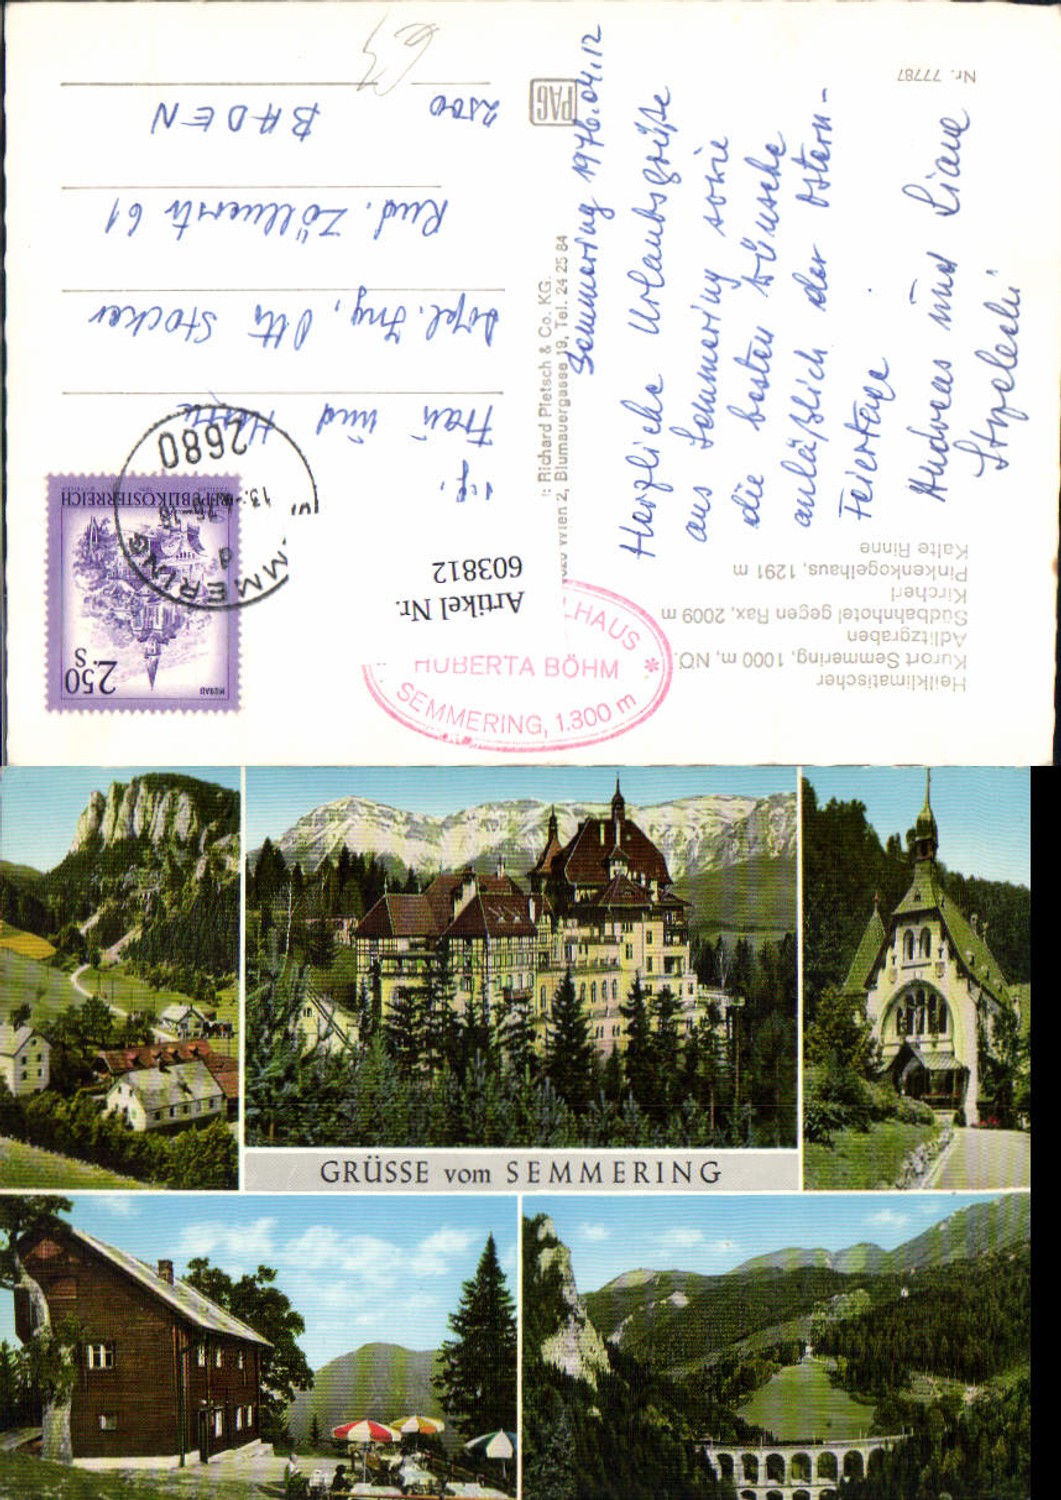 Nr. 77787
Semmering 1976.04.12
Herzliche Urlaubsgrüße
aus Semmering sowie
die besten Wünsche
anläßlich der Ostern-
Feiertage
Andreas und Liane
PAG
: Richard Pietsch & Co. KG.
Wien 2, Blumauergasse 19, Tel. 24 25 84
Frau und
Dipl. Ing. Otto Stocker
Rud. Zöllnerstr 61
2500 BADEN
Heilklimatischer
Kurort Semmering, 1000 m, NÖ.
Adlitzgraben
Südbahnhotel gegen Rax, 2009 m
Kircherl
Pinkenkogelhaus, 1291 m
Kalte Rinne
Artikel Nr.
603812
LHAUS
HUBERTA BÖHM *
SEMMERING, 1.300 m
2680
MMERING
REPUBLIK ÖSTERREICH
2.50
S
MURAU
GRÜSSE vom SEMMERING